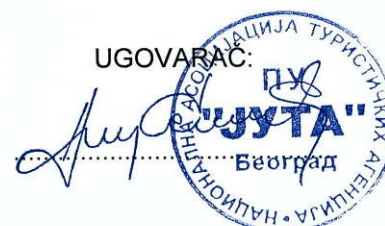 UGOVARAČ:
НАЦИОНАЛНА АСОЦИЈАЦИЈА ТУРИСТИЧКИХ АГЕНЦИЈА
ПУ
"ЈУТА"
Београд